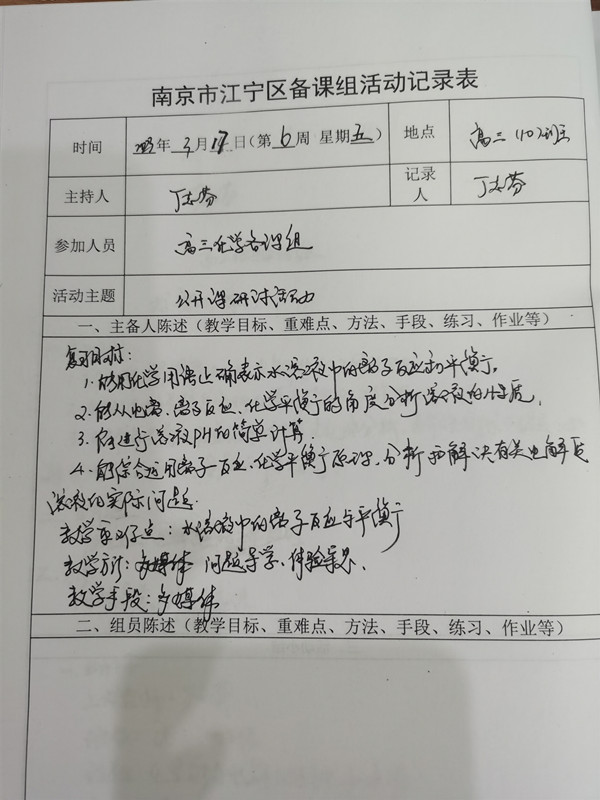 南京市江宁区备课组活动记录表
时间 2023年3月17日(第6周 星期五) 地点 高三(10)班
主持人 丁志芬 记录人 丁志芬
参加人员 高三化学备课组
活动主题 公开课研讨活动
一、主备人陈述(教学目标、重难点、方法、手段、练习、作业等)
复习目标:
1.能用化学用语正确表示水溶液中的离子反应和平衡。
2.能从电离、离子反应、化学平衡的角度分析溶液的性质。
3.能进行溶液PH的简单计算.
4.能综合运用离子反应、化学平衡原理,分析和解决有关电解质
溶液的实际问题.
教学重难点:水溶液中的离子反应与平衡
教学方法: 问题导学、体验
教学手段:多媒体
二、组员陈述(教学目标、重难点、方法、手段、练习、作业等)